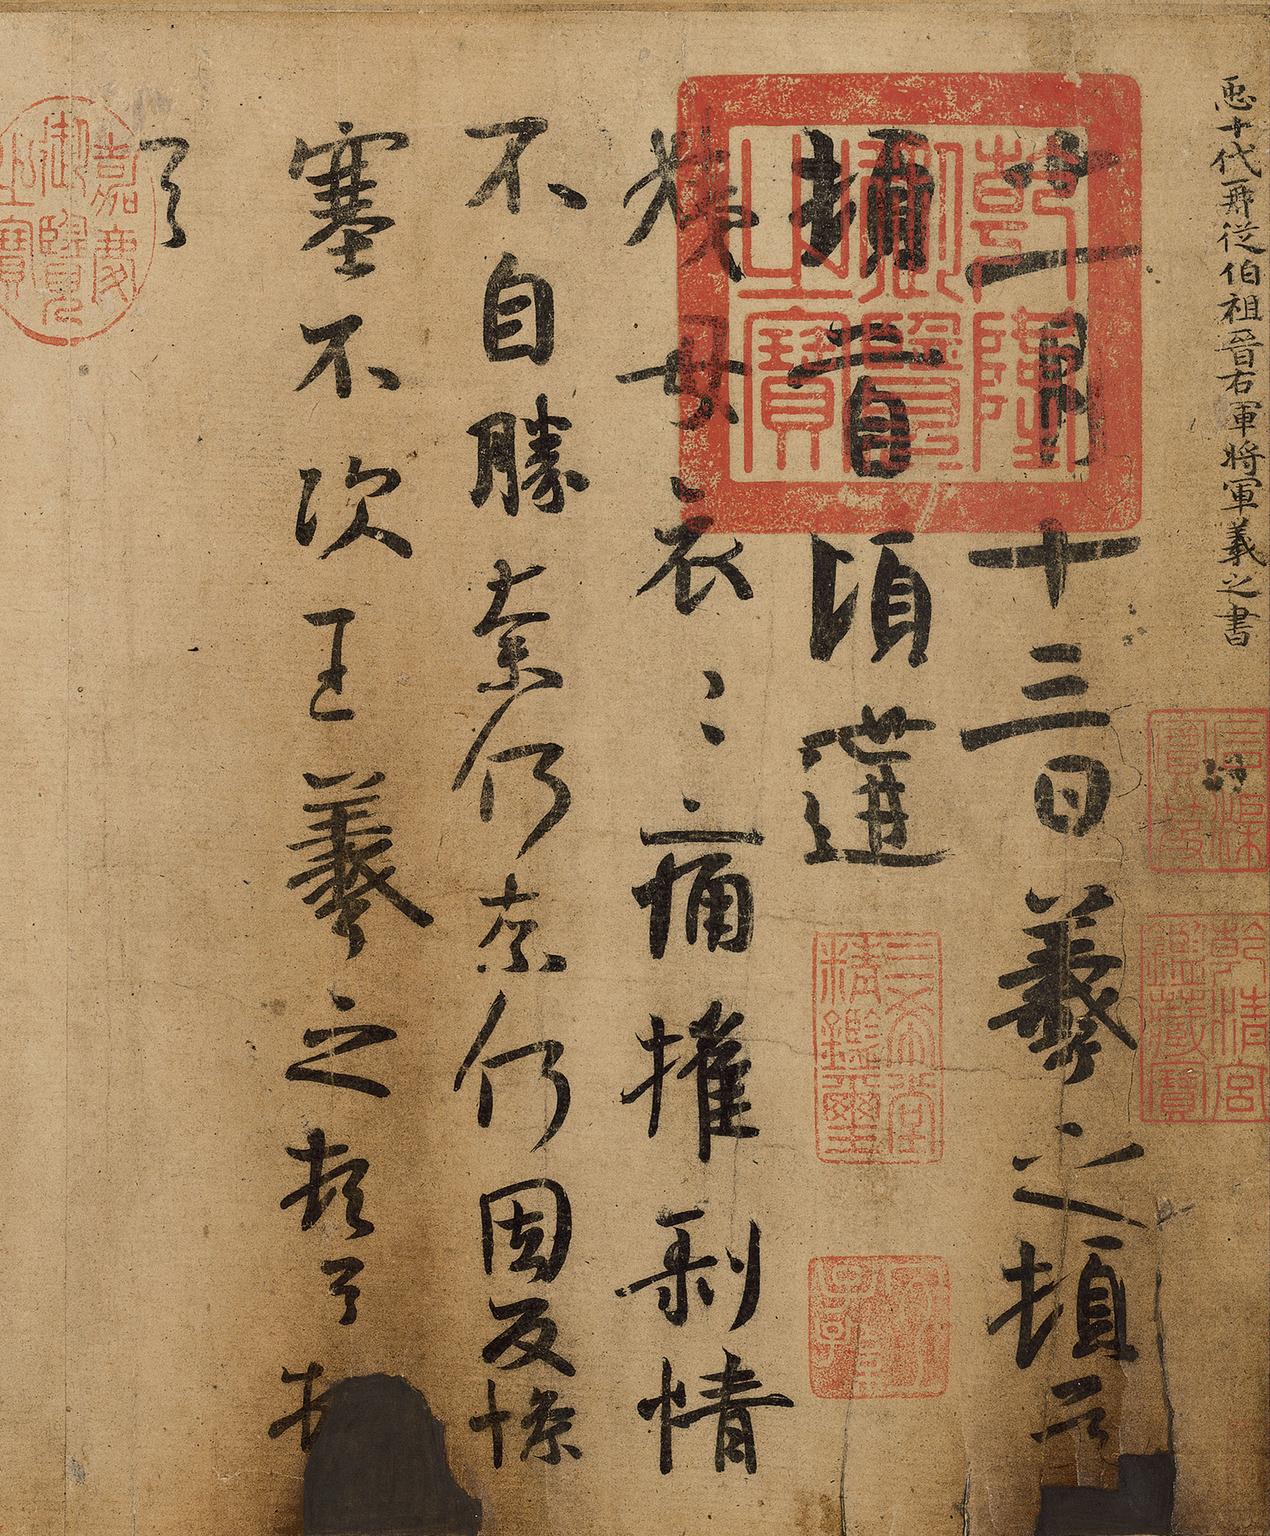 臣十代再從伯祖晉右軍將軍羲之書
石渠寶笈
乾清宮鑑藏寶
乾隆御覽之寶
十一月十三日羲之頓首
頓首頃遘
三希堂精鑑璽
姨母哀〻痛摧剝情
不自勝奈何奈何因反慘
塞不次王羲之頓首頓
首
嘉慶御覽之寶